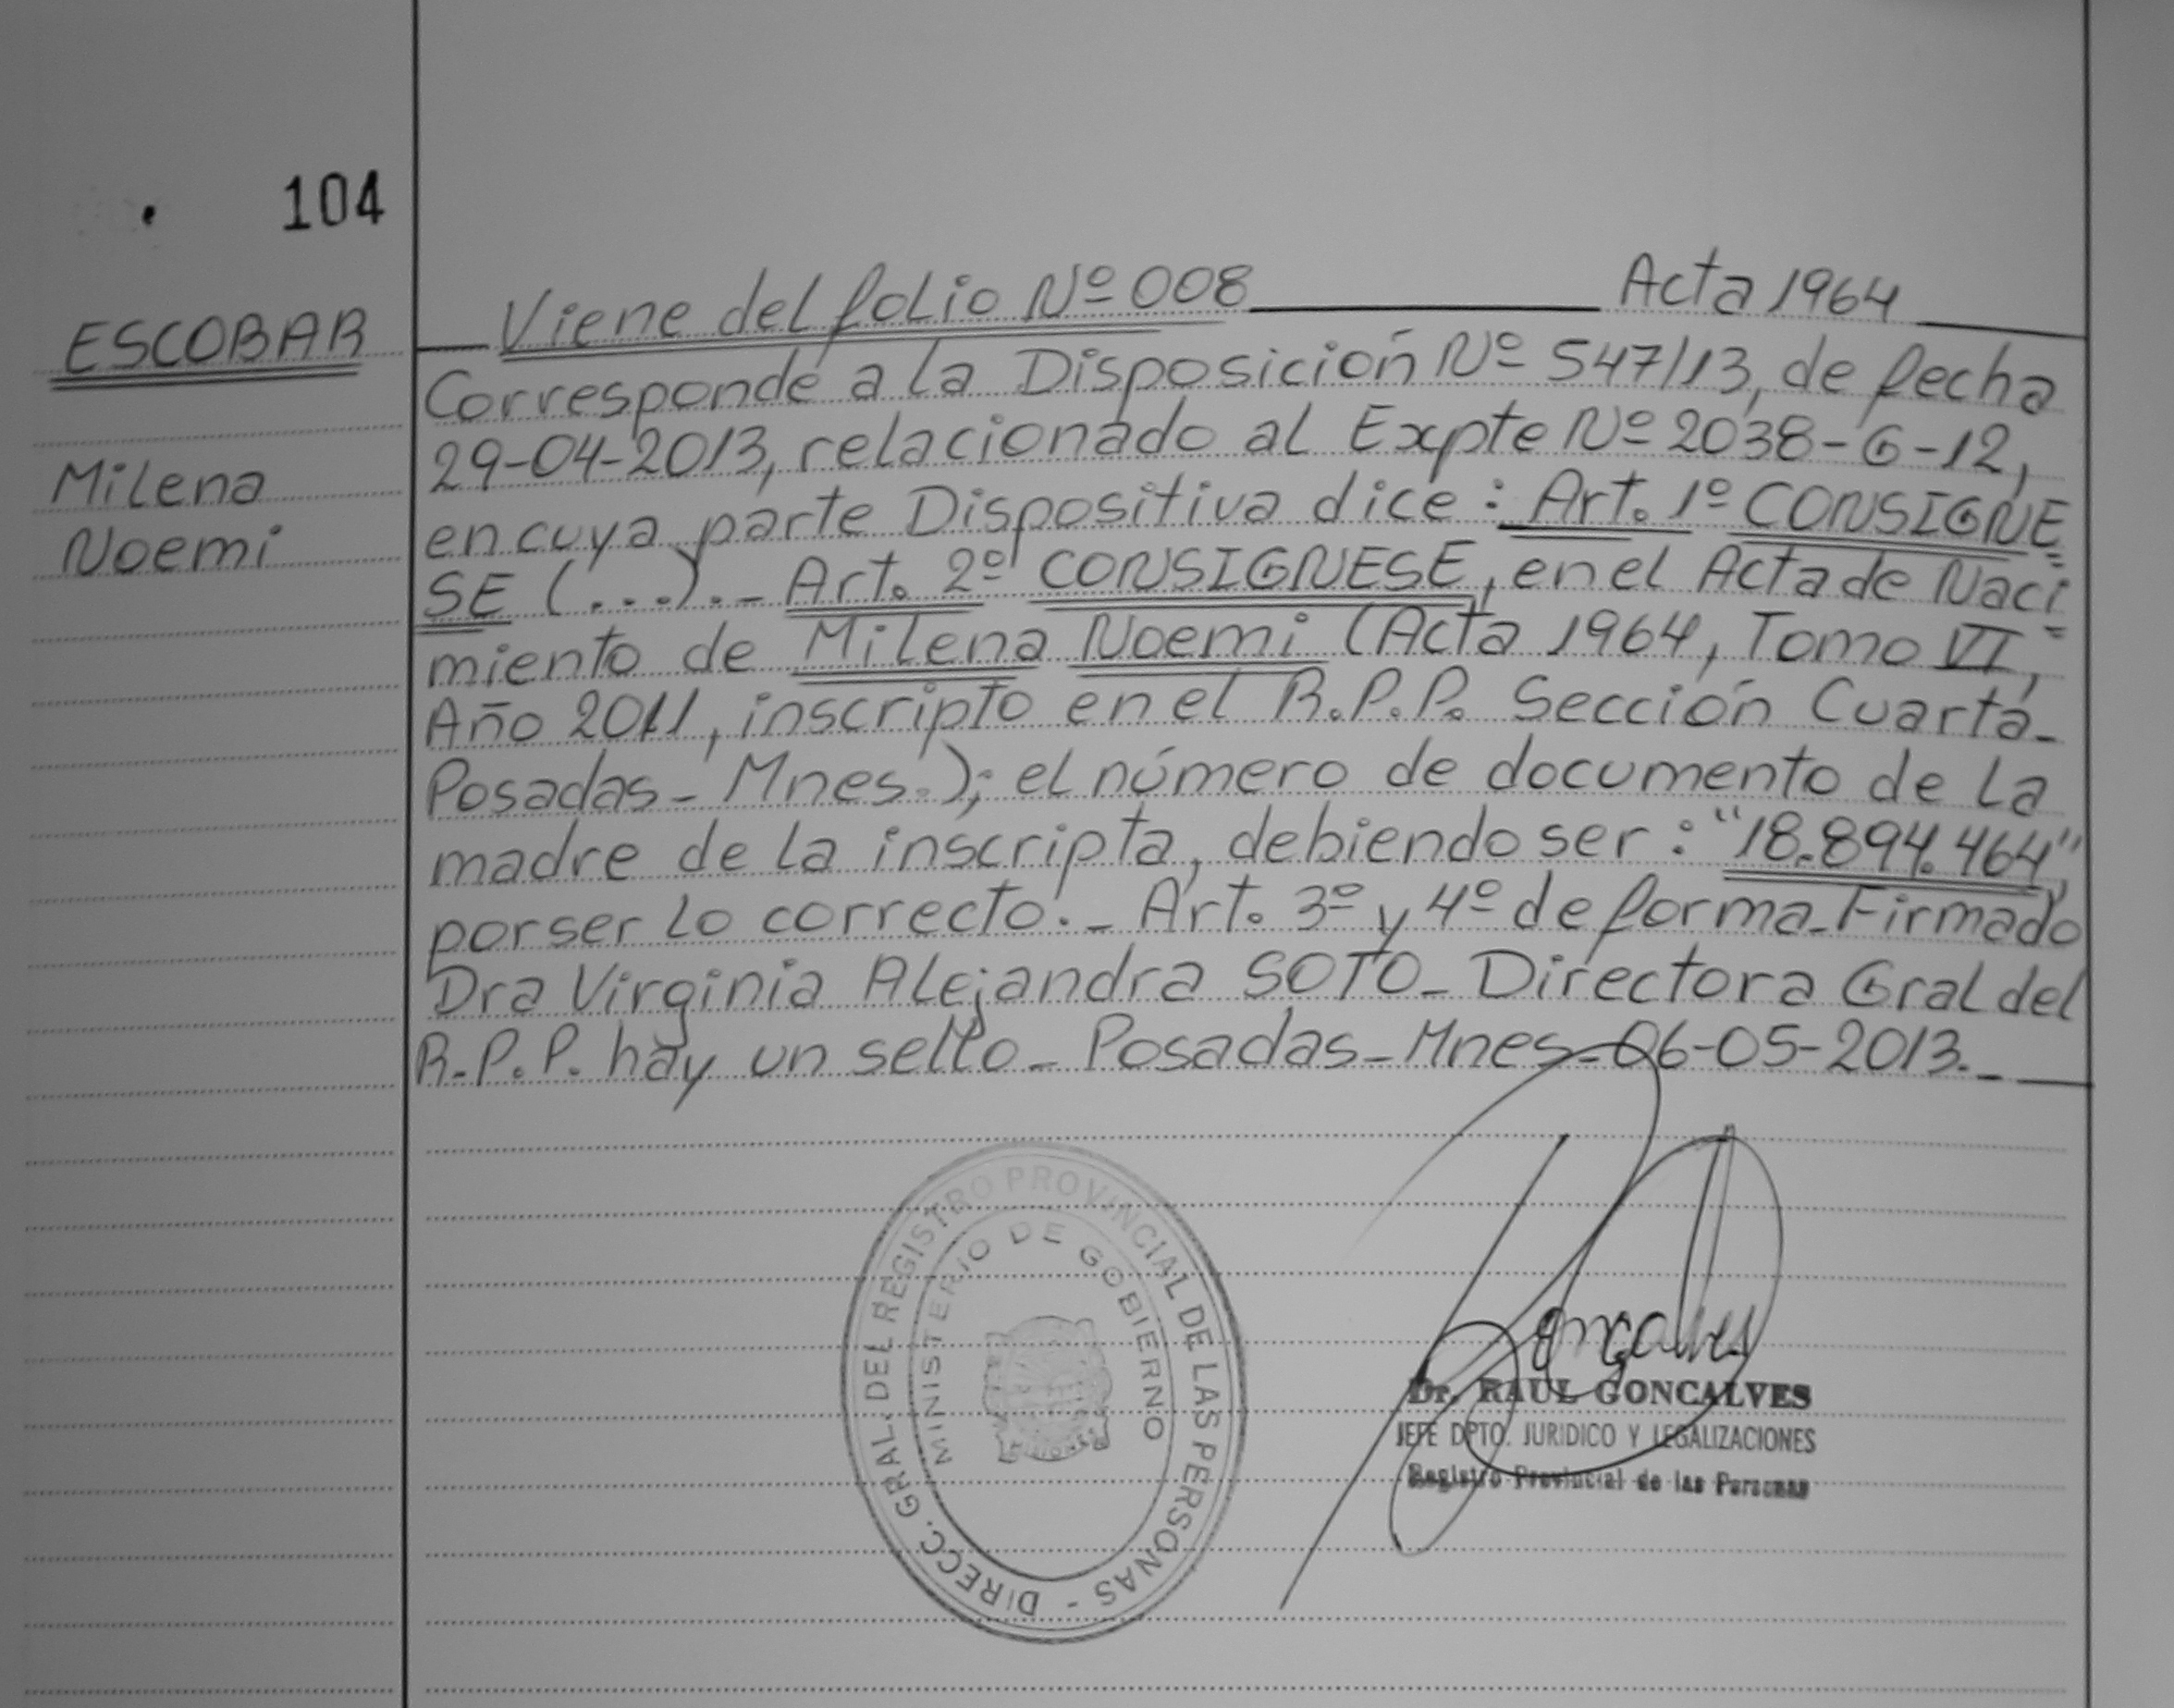 104
ESCOBAR
Milena
Noemi
Viene del folio Nº 008 Acta 1964
Corresponde a la Disposición Nº 547/13, de fecha
29-04-2013, relacionado al Expte Nº 2038-G-12,
en cuya parte Dispositiva dice: Art. 1º CONSIGNE=
SE (...)._ Art. 2º CONSIGNESE, en el Acta de Naci=
miento de Milena Noemi (Acta 1964, Tomo VI,
Año 2011, inscripto en el R.P.P. Sección Cuarta_
Posadas_ Mnes.); el número de documento de la
madre de la inscripta, debiendo ser: "18.894.464",
por ser lo correcto._ Art. 3º y 4º de forma_Firmado
Dra Virginia Alejandra SOTO_ Directora Gral del
R.P.P. hay un sello_ Posadas_Mnes_06-05-2013._
DIRECC. GRAL. DEL REGISTRO PROVINCIAL DE LAS PERSONAS -
MINISTERIO DE GOBIERNO
MISIONES
Goncalves
Dr. RAUL GONCALVES
JEFE DPTO. JURIDICO Y LEGALIZACIONES
Registro Provincial de las Personas